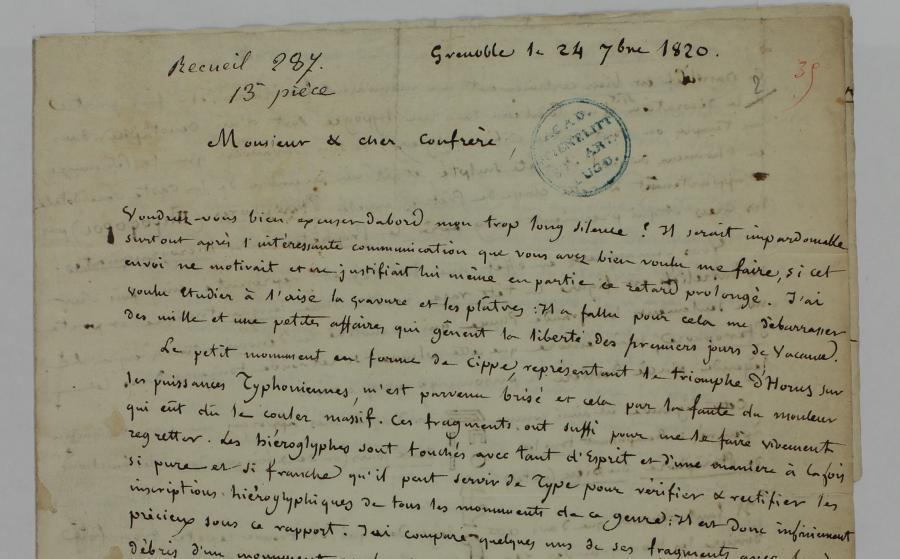 Recueil 287.
13 pièce
Grenoble le 24 7bre 1820.
39
2
Monsieur & cher Confrère,
ACAD.
SC. ART.
LUGD.
Voudrez-vous bien excuser d'abord mon trop long silence ? Il serait impardonnable
surtout après l'intéressante communication que vous avez bien voulu me faire, si cet
envoi ne motivait et ne justifiait lui même en partie ce retard prolongé. J'ai
voulu étudier à l'aise la gravure et les plâtres : Il a fallu pour cela me débarrasser
des mille et une petites affaires qui gênent la liberté des premiers jours de Vacance.
Le petit monument en forme de Cippe, représentant le triomphe d'Horus sur
les puissances Typhoniennes, m'est parvenu brisé et cela par la faute du mouleur
qui eût dû le couler massif. Ces fragments ont suffi pour me le faire vivement
regretter. Les hiéroglyphes sont touchés avec tant d'Esprit et d'une manière à la fois
si pure et si franche qu'il peut servir de Type pour vérifier & rectifier les
inscriptions hiéroglyphiques de tous les monuments de ce genre : Il est donc infiniment
précieux sous ce rapport. J'ai comparé quelques uns de ses fragments avec
débris d'un monument